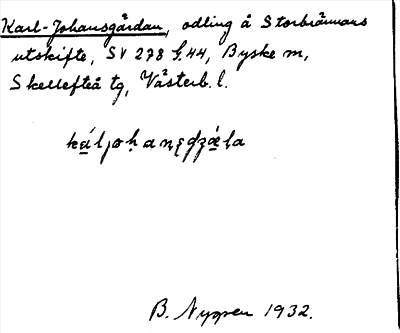 Karl-Johansgårdan, odling å Storbrännans
utskifte, SV 278 f. 44, Byske m,
Skellefteå tg, Västerb. l.
B. Nygren 1932.